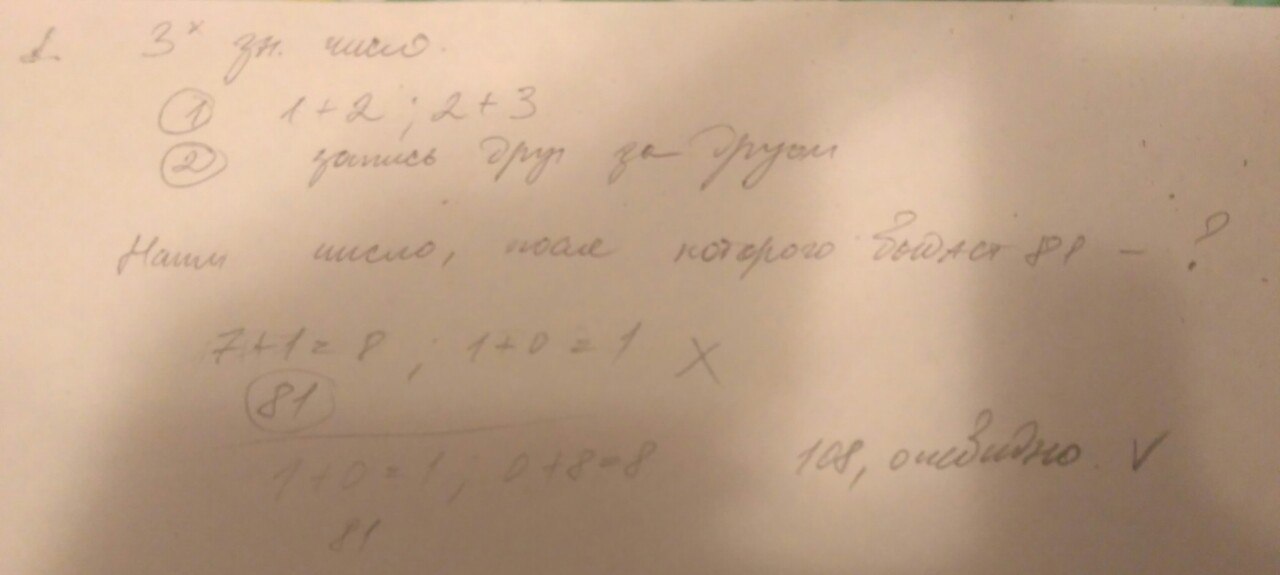 1. 3х зн. число.
① 1+2 ; 2+3
② запись друг за другом
Наим число, после которого выдаст 81 - ?
7+1=8 ; 1+0=1 X
81
1+0=1 ; 0+8=8 108, очевидно. V
81